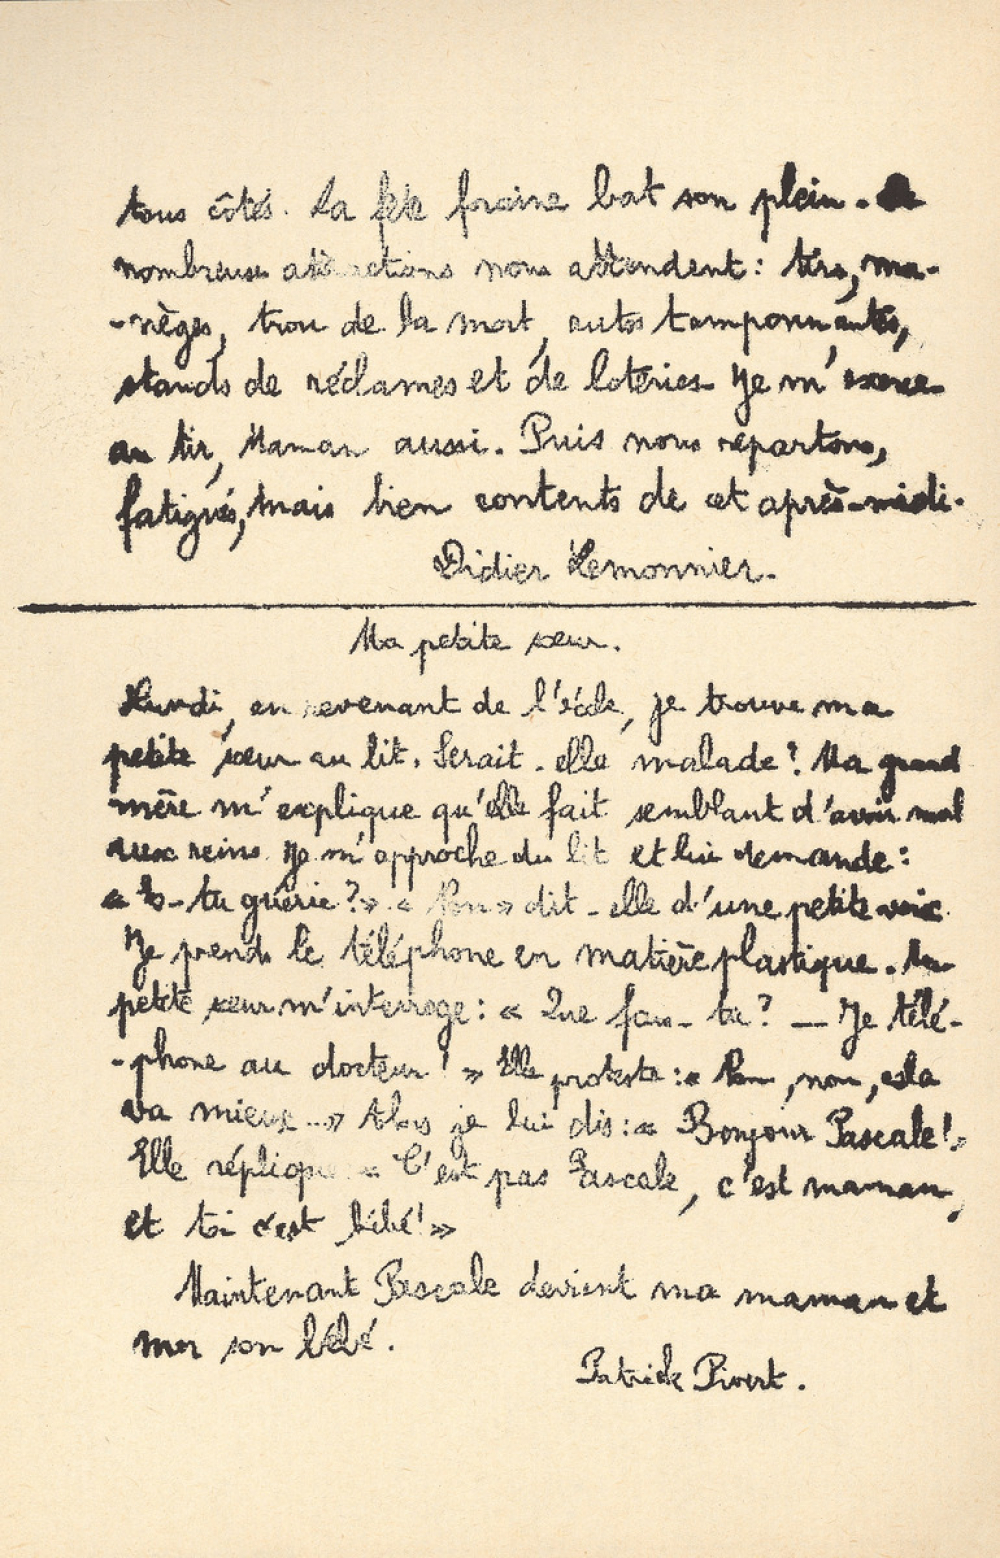 tous côtés. La fête foraine bat son plein. De
nombreuses attractions nous attendent : tirs, ma-
-nèges, trou de la mort, autos tamponnantes,
stands de réclames et de loteries. Je m'exerce
au tir, Maman aussi. Puis nous repartons,
fatigués, mais bien contents de cet après-midi.
Didier Lemonnier.
Ma petite sœur.
Lundi, en revenant de l'école, je trouve ma
petite sœur au lit. Serait-elle malade ? Ma grand
mère m'explique qu'elle fait semblant d'avoir mal
aux reins. Je m'approche du lit et lui demande :
« Es-tu guérie ? » « Non » dit-elle d'une petite voix.
Je prends le téléphone en matière plastique. Ma
petite sœur m'interroge : « Que fais-tu ? — Je télé-
-phone au docteur ! » Elle proteste : « Non, non, cela
va mieux... » Alors je lui dis : « Bonjour Pascale ! »
Elle réplique « C'est pas Pascale, c'est maman,
et toi c'est bébé ! »
Maintenant Pascale devient ma maman et
moi son bébé.
Patrick Pivert.